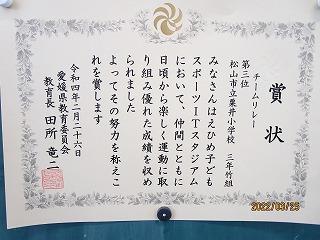 賞状
チームリレー
第三位
松山市立粟井小学校 三年竹組
みなさんはえひめ子ども
スポーツITスタジアム
において、仲間とともに
日頃から楽しく運動に取
り組み優れた成績を収め
られました
よってその努力を称えこ
れを賞します
令和四年二月二十六日
愛媛県教育委員会
教育長 田所竜二
2022/03/25